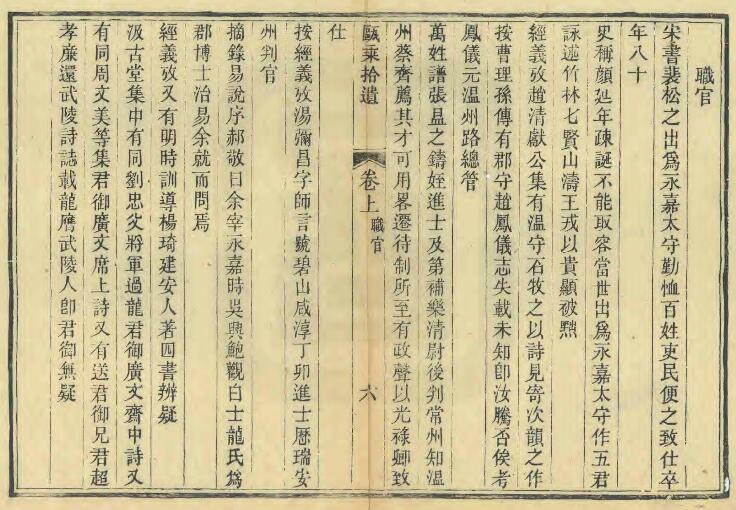 職官
宋書裴松之出爲永嘉太守勤恤百姓吏民便之致仕卒
年八十
史稱顏延年疎誕不能取容當世出爲永嘉太守作五君
詠述竹林七賢山濤王戎以貴顯被黜
經義攷趙清獻公集有溫守石牧之以詩見寄次韻之作
按曹理孫傳有郡守趙鳳儀志失載未知卽汝騰否俟考
鳳儀元溫州路總管
萬姓譜張昷之鑄姪進士及第補樂清尉後判常州知溫
州蔡齊薦其才可用畧遷待制所至有政聲以光祿卿致
仕
甌乘拾遺
卷上
職官
六
按經義攷湯彌昌字師言號碧山咸淳丁卯進士歷瑞安
州判官
摘錄易說序郝敬曰余宰永嘉時吳興鮑觀白士龍氏爲
郡博士治易余就而問焉
經義攷又有明時訓導楊琦建安人著四書辨疑
汲古堂集中有同劉忠父將軍過龍君御廣文齋中詩又
有同周文美等集君御廣文席上詩又有送君御兄君超
孝廉還武陵詩誌載龍膺武陵人卽君御無疑